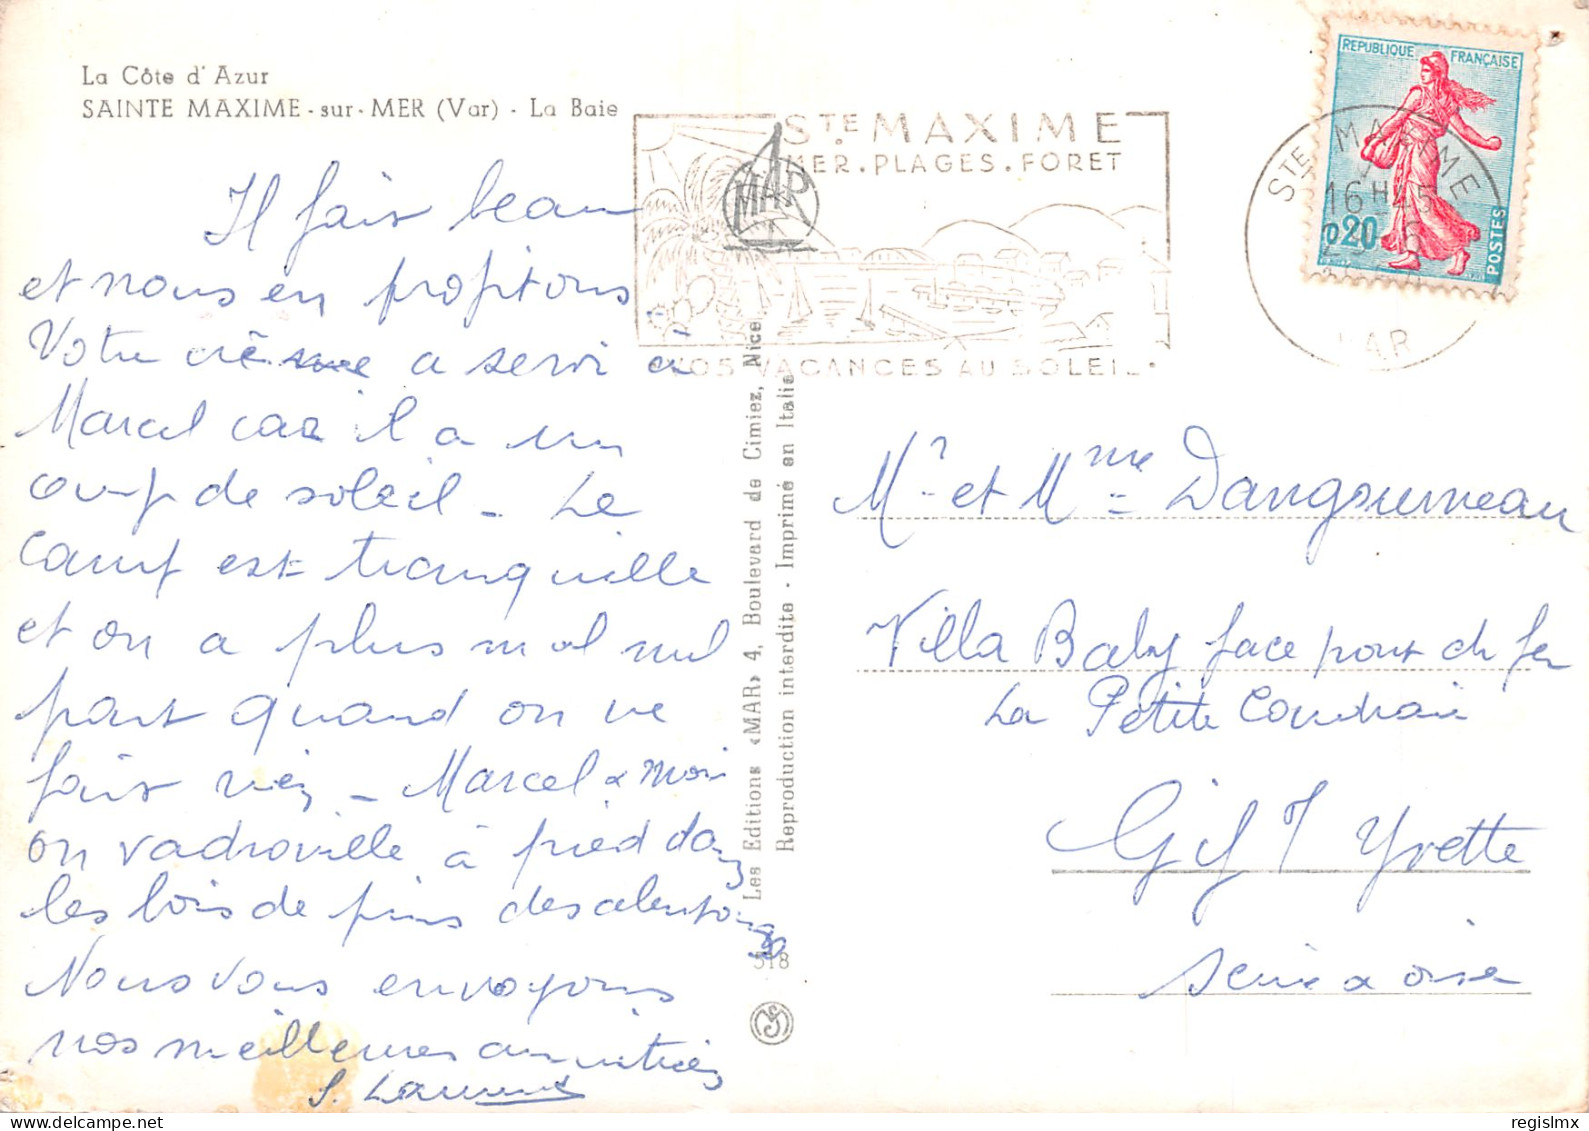 La Côte d'Azur
SAINTE MAXIME - sur - MER (Var) - La Baie
Il fait beau
et nous en profitons
Votre crème a servi à
Marcel car il a un
coup de soleil - Le
camp est tranquille
et on a plus mal nul
part quand on ne
fait rien - Marcel & moi
on vadrouille à pied dans
les bois de pins des alentours
Nous vous envoyons
nos meilleures amitiés
S. Laurent
STE MAXIME
MER . PLAGES . FORET
VOS VACANCES AU SOLEIL
MAR
Les Editions «MAR» 4, Boulevard de Cimiez, Nice
Reproduction interdite - Imprimé en Italie
518
REPUBLIQUE FRANÇAISE
0,20
POSTES
STE MAXIME
16H45
VAR
Mr et Mme Dangoumeau
Villa Baby face pont ch fer
La Petite Coudraie
Gif s/ Yvette
Seine & oise
regislmx